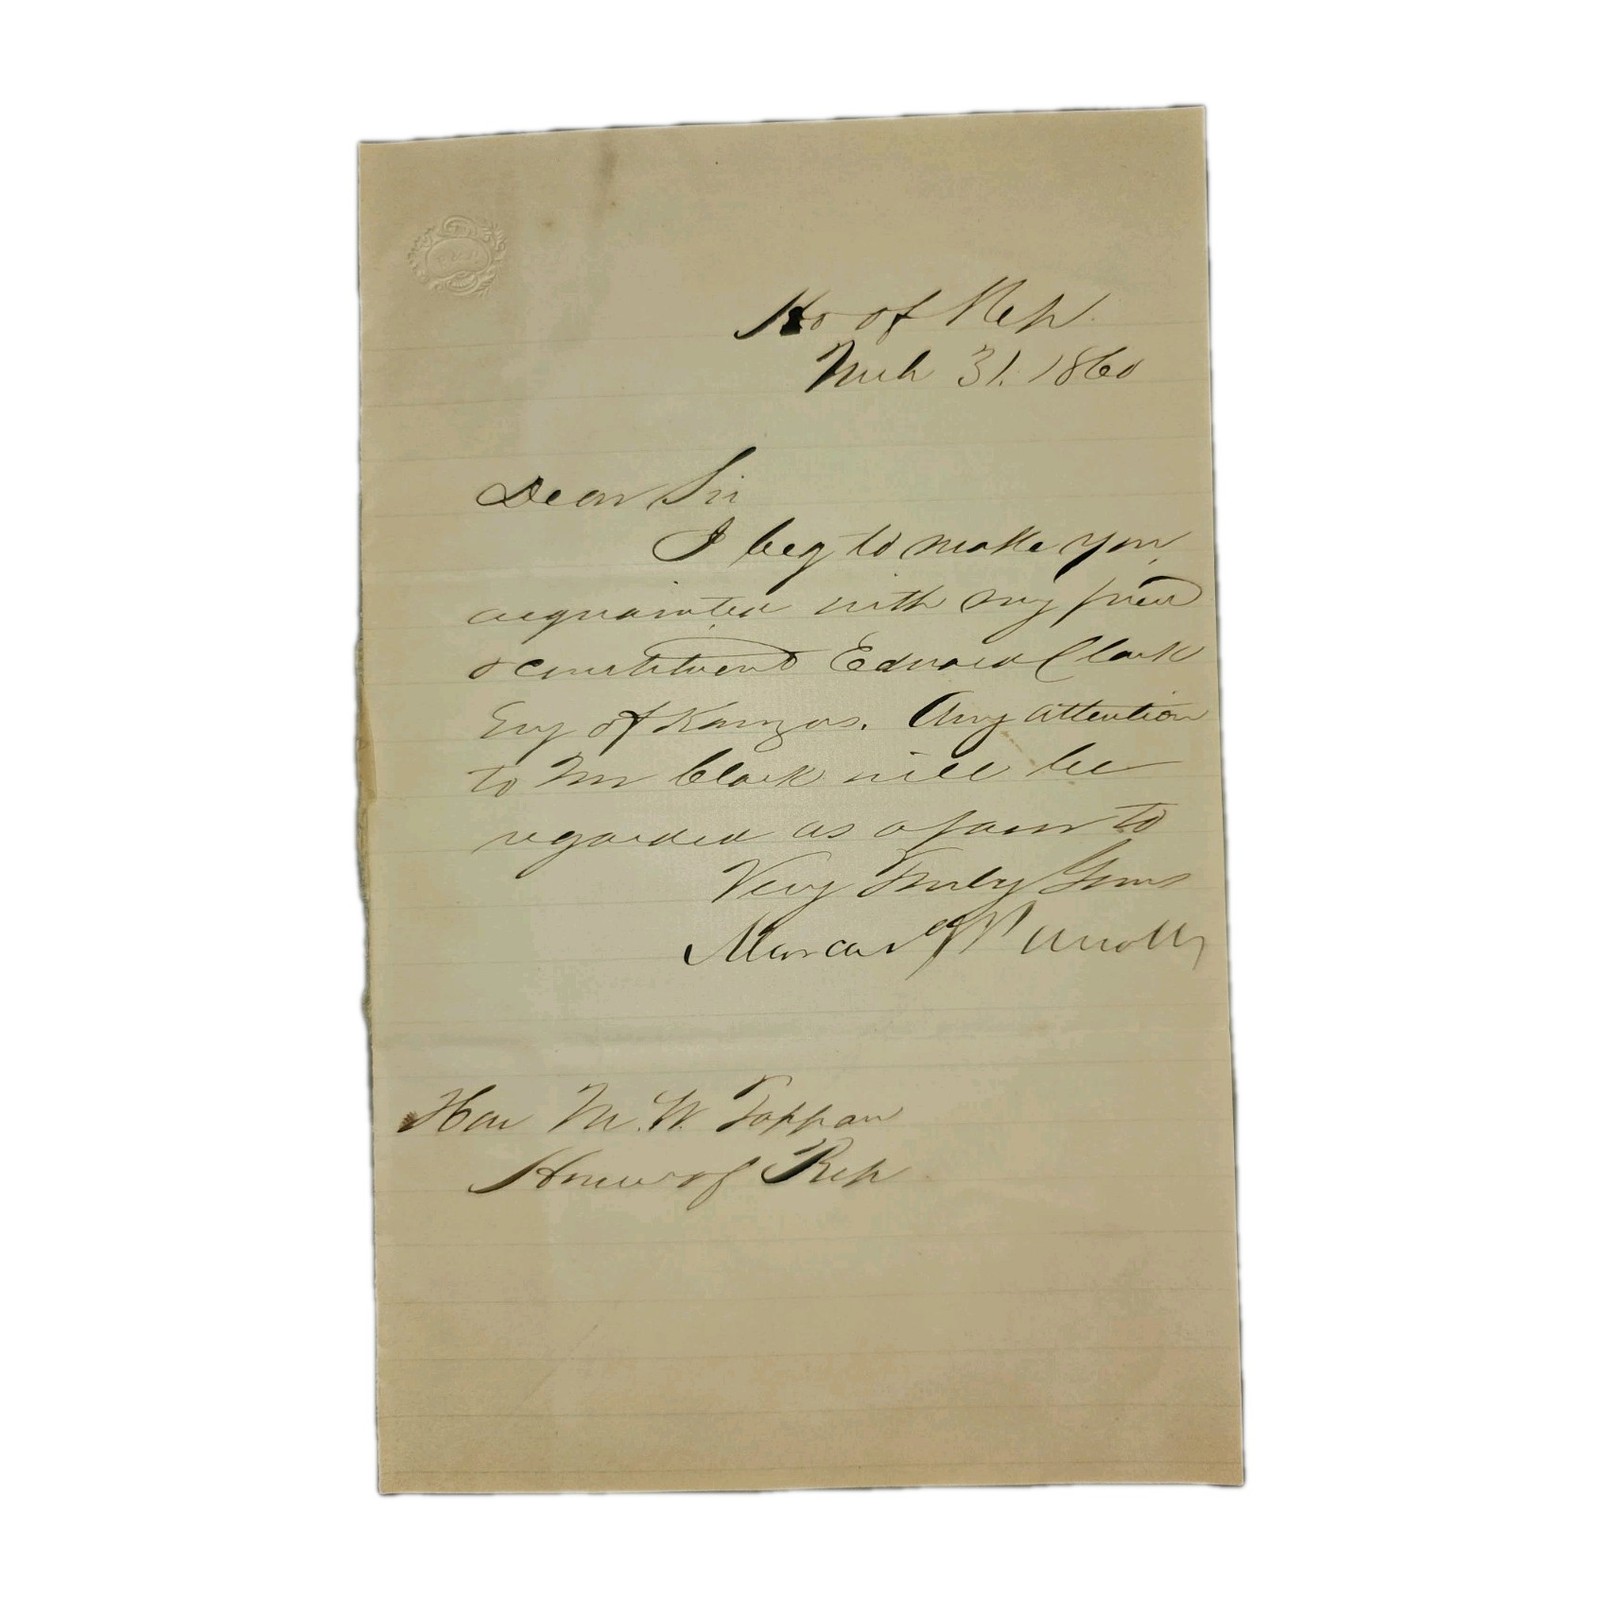 Ho of Rep.
Mch 31. 1860
Dear Sir
I beg to make you
acquainted with my friend
& constituent Edward Clark
Esq of Kanzas. Any attention
to Mr Clark will be
regarded as a favor to
Very Truly Yours
Marcus J Parrott
Hon M. W. Tappan
House of Rep.